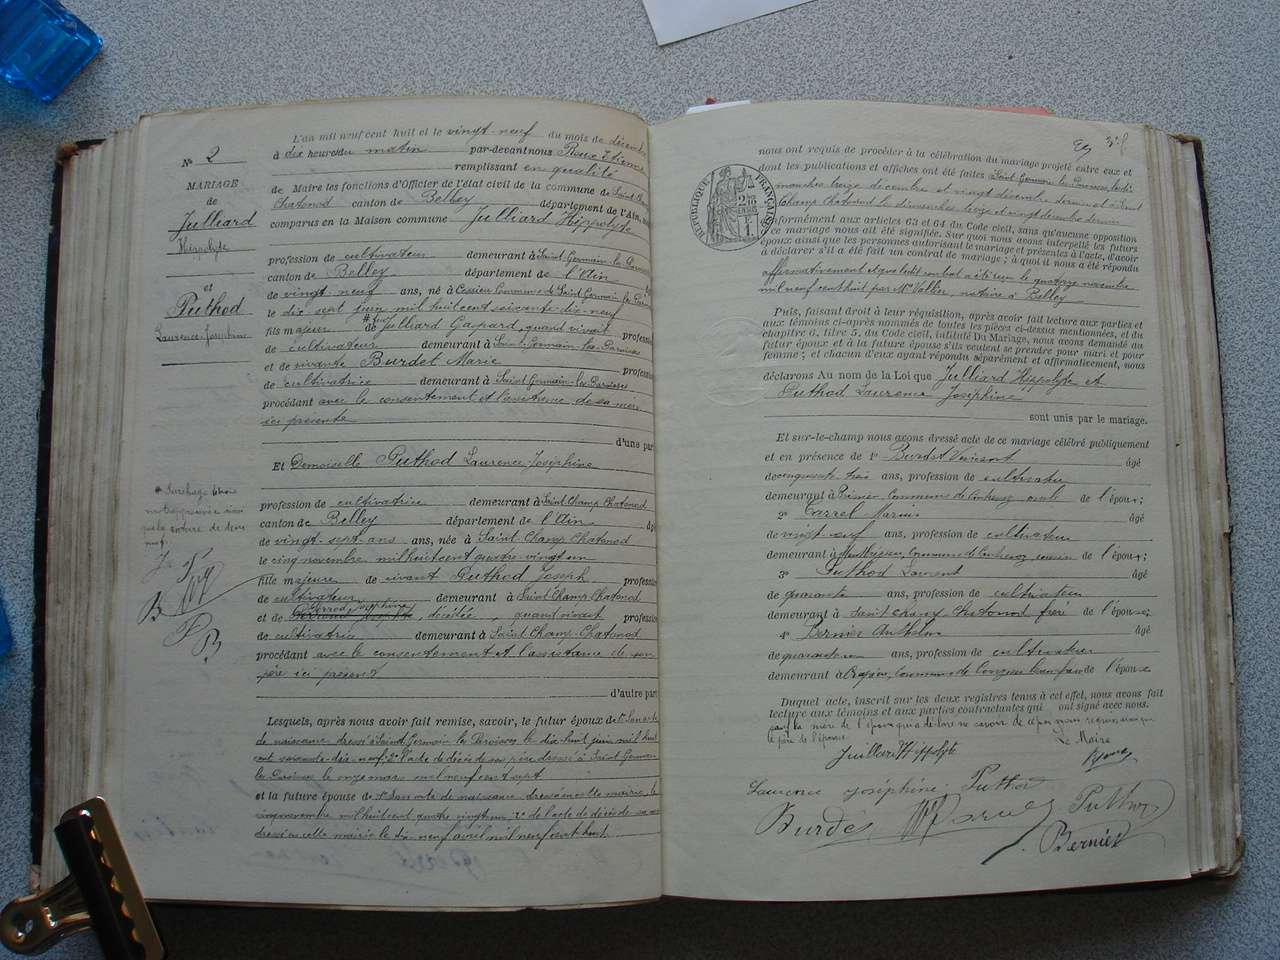 L'an mil neuf cent huit et le vingt-neuf du mois de décembre
à dix heures du matin par-devant nous Roux Etienne
remplissant en qualité
de Maire les fonctions d'Officier de l'état civil de la commune de Saint-Champ
Chatonod canton de Belley département de l'Ain,
comparus en la Maison commune Julliard Hippolyte
N° 2
MARIAGE
de
Julliard
Hippolyte
et
Puthod
Laurence-Josephine
profession de cultivateur demeurant à Saint Germain-les-Paroisses
canton de Belley département de l'Ain
de vingt-neuf ans, né à Cessieu Commune de Saint Germain les Paroisses
le dix sept juin mil huit cent soixante-dix-neuf
fils majeur de feu Julliard Gaspard, quand vivait profession
de cultivateur demeurant à Saint-Germain-les-Paroisses
et de vivante Burdet Marie profession
de cultivatrice demeurant à Saint Germain-les-Paroisses
procédant avec le consentement et l'assistance de sa mère
ici présente
d'une part
Et Demoiselle Puthod Laurence-Joséphine
profession de cultivatrice demeurant à Saint Champ Chatonod
canton de Belley département de l'Ain
de vingt-sept ans ans, née à Saint Champ Chatonod
le cinq novembre mil huit cent quatre-vingt un
fille majeure de vivant Puthod Joseph profession
de cultivateur demeurant à Saint Champ Chatonod
et de décédée, quand vivait profession
de cultivatrice demeurant à Saint Champ-Chatonod
procédant avec le consentement et l'assistance de son
père ici présent
d'autre part
Lesquels, après nous avoir fait remise, savoir, le futur époux de 1° Son acte
de naissance dressé à Saint Germain les Paroisses le dix-huit juin mil huit
cent soixante dix neuf; 2° l'acte de décès de son père dressé à Saint Germain
les Paroisses le onze mars mil neuf cent sept
et la future épouse de 1° Son acte de naissance dressé en cette mairie, le
novembre mil huit cent quatre vingt un 2° de l'acte de décès de sa mère
dressé en cette mairie le dix neuf avril mil neuf cent huit
nous ont requis de procéder à la célébration du mariage projeté entre eux et
dont les publications et affiches ont été faites à Saint Germain les Paroisses, les di-
manches treize décembre et vingt décembre dernier et à Saint
Champ Chatonod les dimanches treize et vingt décembre dernier
RÉPUBLIQUE FRANÇAISE
conformément aux articles 63 et 64 du Code civil, sans qu'aucune opposition
à ce mariage nous ait été signifiée. Sur quoi nous avons interpellé les futurs
époux ainsi que les personnes autorisant le mariage et présentes à l'acte, d'avoir
à déclarer s'il a été fait un contrat de mariage ; à quoi il nous a été répondu
affirmativement et que ledit contrat a été reçu le quatorze novembre
mil neuf cent huit par Me Vallier, notaire à Belley
Puis, faisant droit à leur réquisition, après avoir fait lecture aux parties et
aux témoins ci-après nommés de toutes les pièces ci-dessus mentionnées, et du
chapitre 6, titre 5, du Code civil, intitulé Du Mariage, nous avons demandé au
futur époux et à la future épouse s'ils veulent se prendre pour mari et pour
femme ; et chacun d'eux ayant répondu séparément et affirmativement, nous
déclarons Au nom de la Loi que Julliard Hippolyte et
Puthod Laurence Joséphine
sont unis par le mariage.
Et sur-le-champ nous avons dressé acte de ce mariage célébré publiquement
et en présence de 1° Burdet Vincent âgé
de cinquante trois ans, profession de cultivateur
demeurant à Commune de oncle de l'époux;
2° Carrel Marius âgé
de vingt-neuf ans, profession de cultivateur
demeurant à commune de cousin de l'époux;
3° Puthod Laurent âgé
de quarante ans, profession de cultivateur
demeurant à Saint Champ Chatonod frère de l'épouse;
4° Bernier Anthelme âgé
de quarante ans, profession de cultivateur
demeurant à Commune de de l'épouse
Duquel acte, inscrit sur les deux registres tenus à cet effet, nous avons fait
lecture aux témoins et aux parties contractantes qui ont signé avec nous.
sauf la mère de l'époux qui a déclaré ne savoir
le père de l'épouse Le Maire
Juillard Hippolyte
Laurence Joséphine Puthod
Burdet Puthod
Bernier